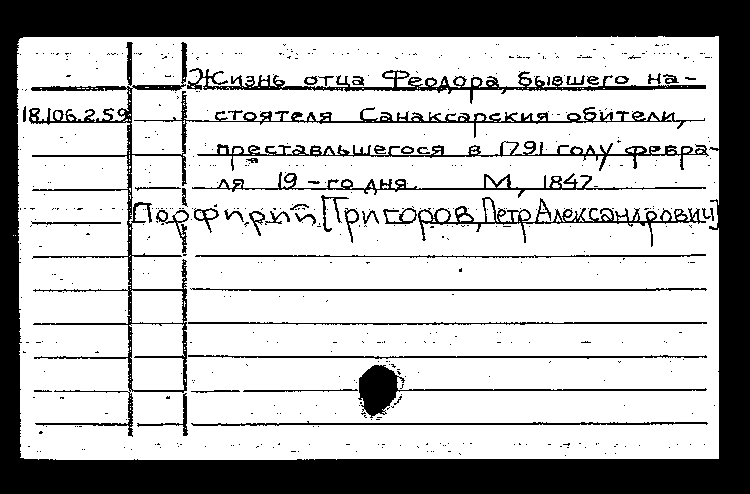 Жизнь отца Феодора, бывшего на-
18.106.2.59 стоятеля Санаксарския обители,
преставльшегося в 1791 году февра-
ля 19-го дня. М, 1847.
Порфирий [Григоров, Петр Александрович]